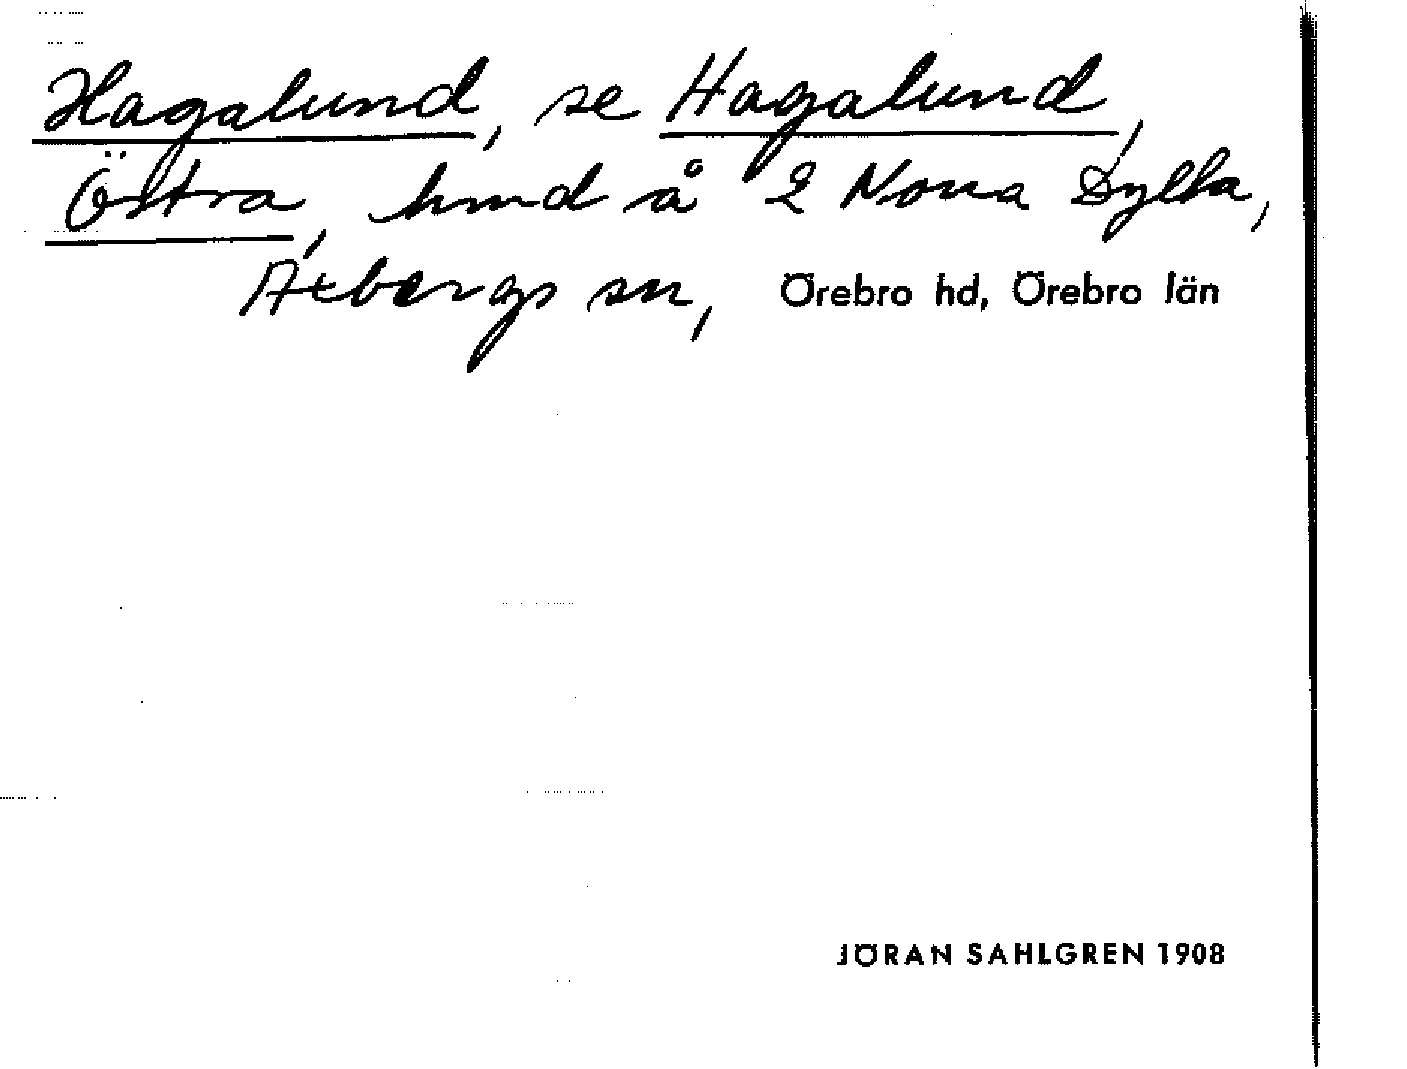 Hagalund, se Hagalund,
Östra, hmd å 2 Norra Dylta,
Axbergs sn, Örebro hd, Örebro län
JÖRAN SAHLGREN 1908